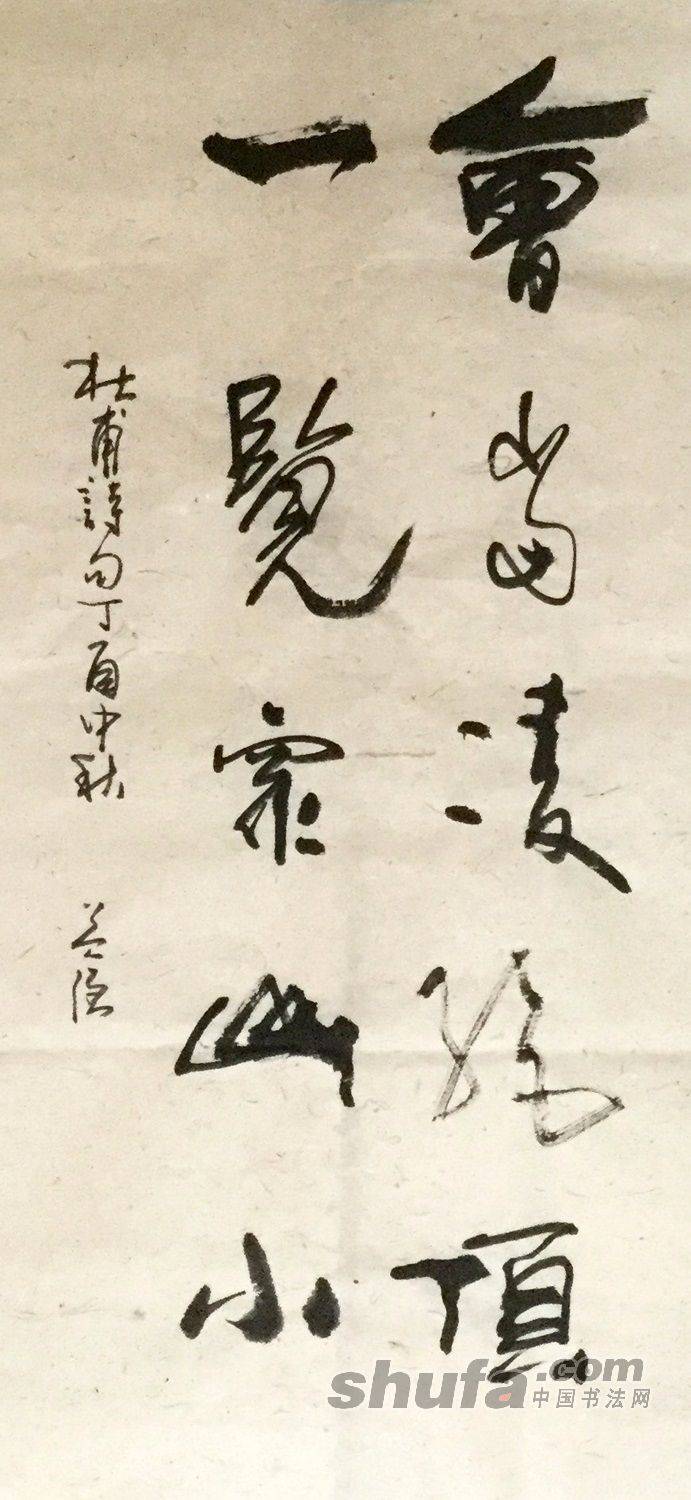 會當凌絕頂
一覽衆山小
杜甫詩句丁酉中秋
shufa.com
中国书法网